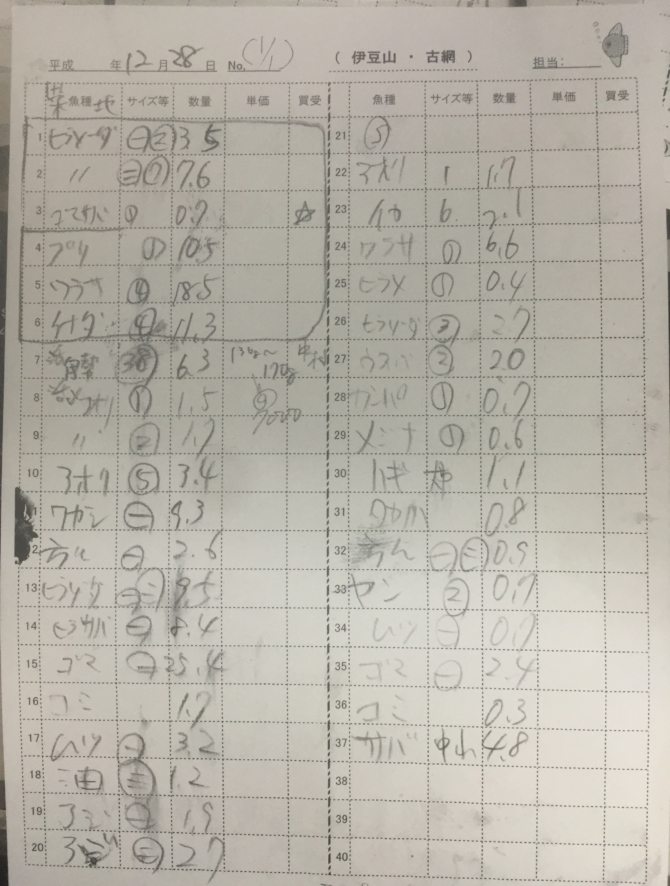 平成 年 12 月 28 日 No. (1/1) ( 伊豆山 ・ 古網 ) 担当:
築地
魚種 サイズ等 数量 単価 買受
1 ヒラソーダ ㊀② 35
2 〃 ㊂⑦ 7.6
3 ゴマサバ ① 0.7 ☆
4 ブリ ① 10.5
5 ワラサ ④ 18.5
6 イナダ ④ 11.3
7 38 6.3 130g〜170g
8 アオリ ① 1.5
9 〃 ② 1.7
10 アオリ ⑤ 3.4
11 ワカシ ㊀ 9.3
12 ㊀ 2.6
13 ヒラソーダ ㊀㊁ 9.5
14 ヒラサバ ㊀ 8.4
15 ゴマ ㊀ 25.4
16 コミ 1.7
17 ムツ ㊀ 3.2
18 三由 ㊂ 1.2
19 アジ ㊀ 1.9
20 アジ ㊁ 27
魚種 サイズ等 数量 単価 買受
21 ⑤
22 アオリ 1 1.7
23 イカ 6. 2.1
24 ワラサ ① 6.6
25 ヒラメ ① 0.4
26 ヒラソーダ ② 27
27 ウスバ ② 20
28 カンパ ① 0.7
29 メジナ ① 0.6
30 ハギ 1.1
31 0.8
32 ㊀㊁ 0.9
33 ヤン ② 0.7
34 ムツ ㊀ 0.7
35 ゴマ ㊀ 2.4
36 コミ 0.3
37 サバ 中小 4.8
38
39
40